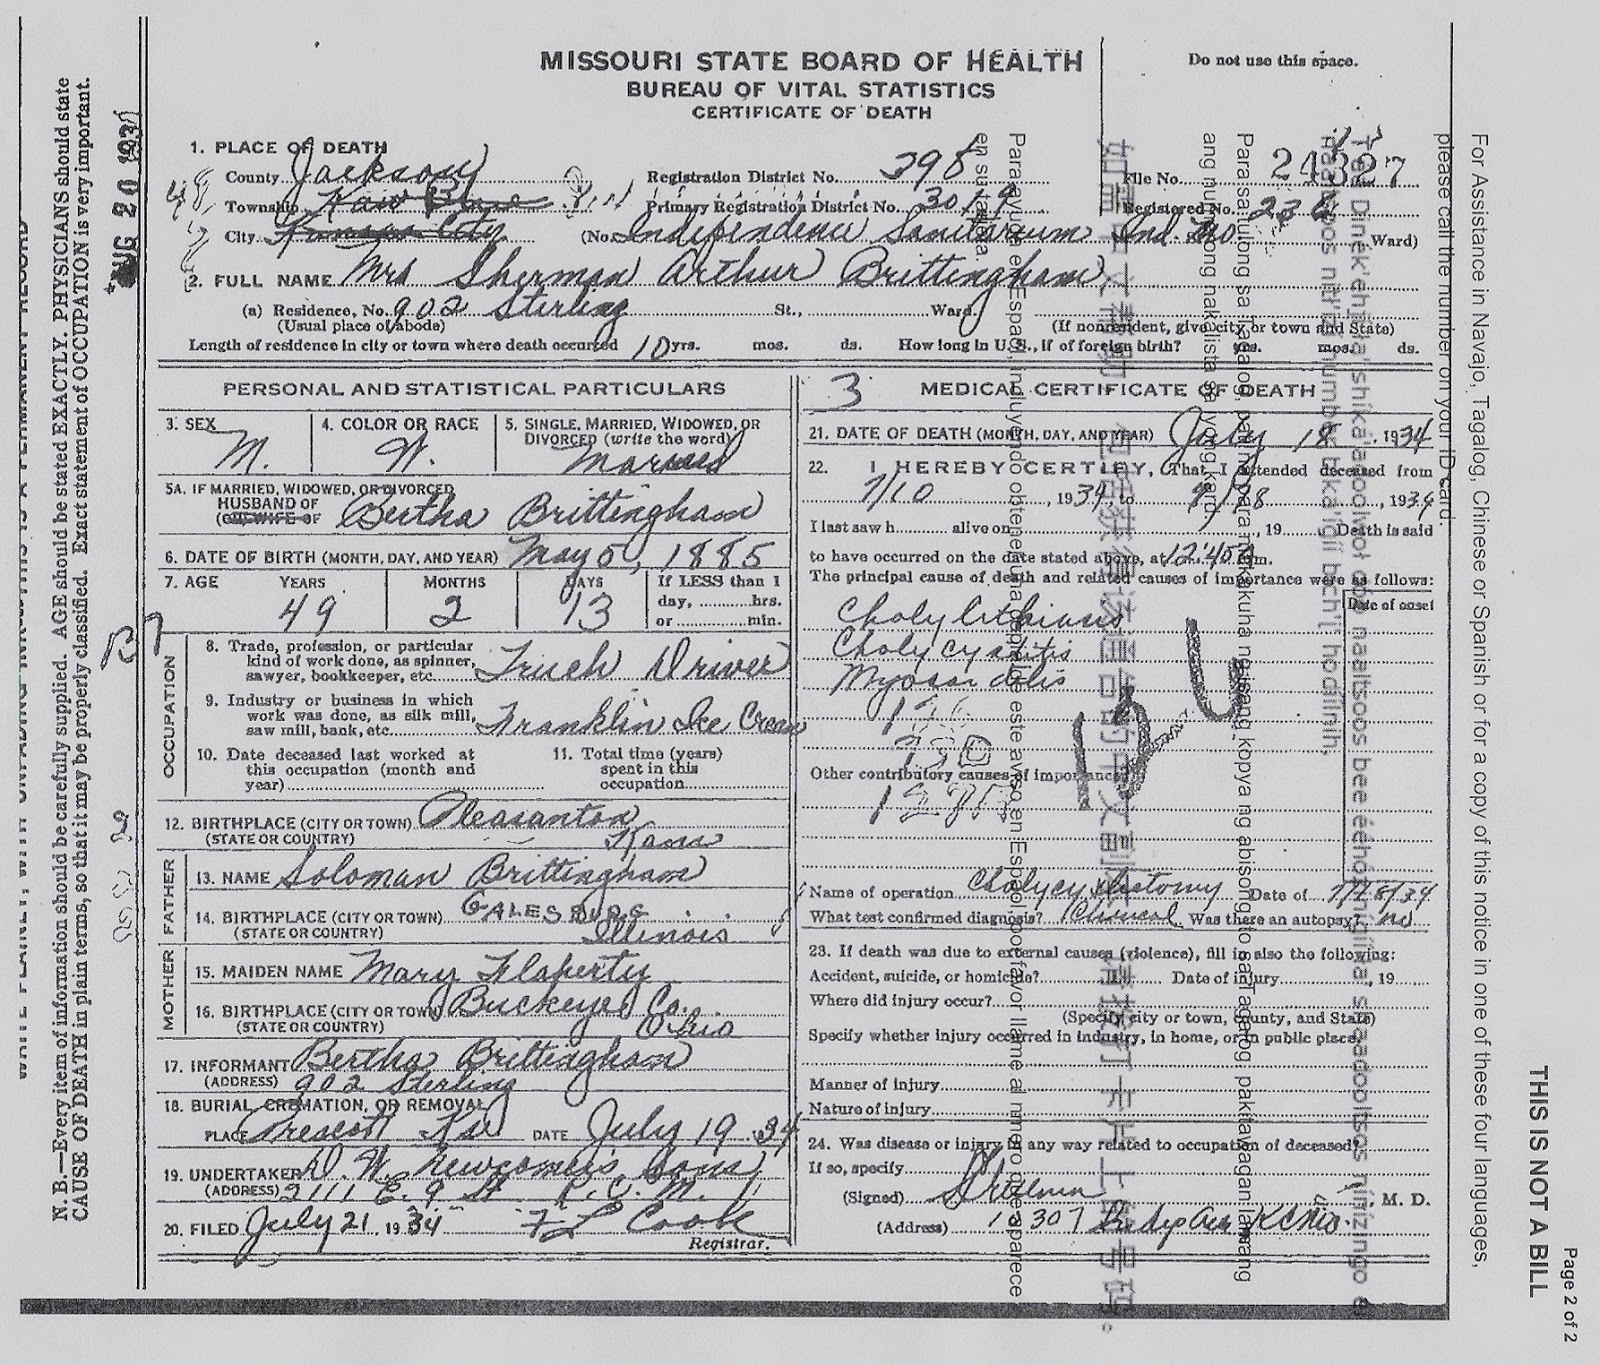 MISSOURI STATE BOARD OF HEALTH
BUREAU OF VITAL STATISTICS
CERTIFICATE OF DEATH
Do not use this space.
1. PLACE OF DEATH
County Jackson Registration District No. 398 File No. 24327
Township Kaw Blue Primary Registration District No. 3019 Registered No.
City Kansas City (No. Independence Sanitarium Ind. Mo. Ward)
2. FULL NAME Mrs Sherman Arthur Brittingham
(a) Residence, No. 902 Sterling St., Ward,
(Usual place of abode) (If nonresident, give city or town and State)
Length of residence in city or town where death occurred 10 yrs. mos. ds. How long in U. S., if of foreign birth? yrs. mos. ds.
PERSONAL AND STATISTICAL PARTICULARS
3. SEX M. 4. COLOR OR RACE W. 5. SINGLE, MARRIED, WIDOWED, OR DIVORCED (write the word) Married
5A. IF MARRIED, WIDOWED, OR DIVORCED
HUSBAND OF Bertha Brittingham
(OR) WIFE OF
6. DATE OF BIRTH (MONTH, DAY, AND YEAR) May 5, 1885
7. AGE YEARS MONTHS DAYS If LESS than 1
49 2 13 day, hrs.
or min.
OCCUPATION
8. Trade, profession, or particular
kind of work done, as spinner,
sawyer, bookkeeper, etc. Truck Driver
9. Industry or business in which
work was done, as silk mill,
saw mill, bank, etc. Franklin Ice Cream
10. Date deceased last worked at
this occupation (month and
year)
11. Total time (years)
spent in this
occupation
12. BIRTHPLACE (CITY OR TOWN) Pleasanton
(STATE OR COUNTRY) Kans
FATHER
13. NAME Soloman Brittingham
14. BIRTHPLACE (CITY OR TOWN) GALESBURG
(STATE OR COUNTRY) Illinois
MOTHER
15. MAIDEN NAME Mary Flaherty
16. BIRTHPLACE (CITY OR TOWN) Buckeye Co.
(STATE OR COUNTRY) Ohio
17. INFORMANT Bertha Brittingham
(ADDRESS) 902 Sterling
18. BURIAL, CREMATION, OR REMOVAL
PLACE Prescott Ks DATE July 19 1934
19. UNDERTAKER D. W. Newcomer's Sons
(ADDRESS) 2111 E. 9 St K. C. M.
20. FILED July 21 1934 F L Cook
Registrar.
3 MEDICAL CERTIFICATE OF DEATH
21. DATE OF DEATH (MONTH, DAY, AND YEAR) July 18, 1934
22. I HEREBY CERTIFY, That I attended deceased from
7/10, 1934, to 7/18, 1934
I last saw h alive on , 19 Death is said
to have occurred on the date stated above, at 12:40 m.
The principal cause of death and related causes of importance were as follows:
Date of onset
Choly lithiasis
Choly cystitis
Myocarditis
Other contributory causes of importance:
Name of operation Cholycystostomy Date of 7/18/34
What test confirmed diagnosis? Clinical Was there an autopsy? no
23. If death was due to external causes (violence), fill in also the following:
Accident, suicide, or homicide? Date of injury , 19
Where did injury occur?
(Specify city or town, county, and State)
Specify whether injury occurred in industry, in home, or in public place.
Manner of injury
Nature of injury
24. Was disease or injury in any way related to occupation of deceased?
If so, specify
(Signed) M. D.
(Address) 10307 KC Mo
N. B.—Every item of information should be carefully supplied. AGE should be stated EXACTLY. PHYSICIANS should state
CAUSE OF DEATH in plain terms, so that it may be properly classified. Exact statement of OCCUPATION is very important.
AUG 20 193
For Assistance in Navajo, Tagalog, Chinese or Spanish or for a copy of this notice in one of these four languages,
please call the number on your ID card
Para sa tulong sa Tagalog, o para makakuha ng isang kopya ng abisong ito sa Tagalog pakitawagan lamang
ang numerong nakalista sa iyong kard
THIS IS NOT A BILL
Page 2 of 2